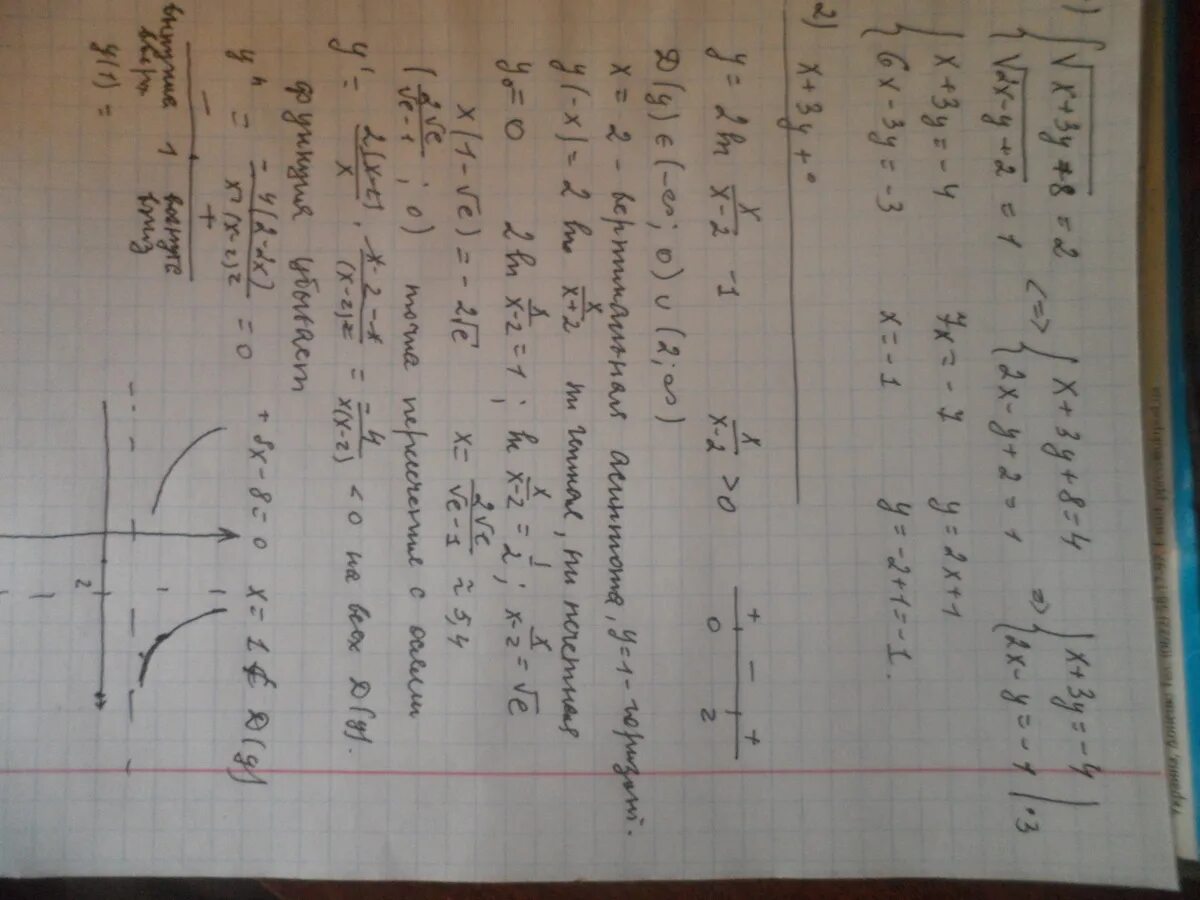 1) { √(x+3y+8) = 2
{ √(2x-y+2) = 1 <=> { x+3y+8=4
{ 2x-y+2=1 => { x+3y=-4
{ 2x-y=-1 | ·3
{ x+3y=-4 7x=-7 y=2x+1
{ 6x-3y=-3 x=-1 y=-2+1=-1.
2) x+3y+
y = 2ln x/(x-2) -1 x/(x-2) >0 + 0 - 2 +
D(y) ∈ (-∞; 0) ∪ (2; ∞)
x=2 - вертикальная асимптота, y=1 - горизонт.
y(-x) = 2 ln x/(x+2) ни четная, ни нечетная
y=0 2ln x/(x-2) =1; ln x/(x-2) = 1/2; x/(x-2) = √e
x(1-√e) = -2√e x= 2√e/(√e-1) ≈ 5,4
(2√e/(√e-1); 0) точка пересечение с осями
y' = 2(x-2)/x · (x-2-x)/(x-2)² = -4/(x(x-2)) < 0 на всех D(y).
функция убывает
y'' = -4(2-2x)/(x²(x-2)²) = 0 + 8x-8=0 x=1 ∉ D(y)
- +
выпукла вверх 1 вогнута вниз
y(1) =
2